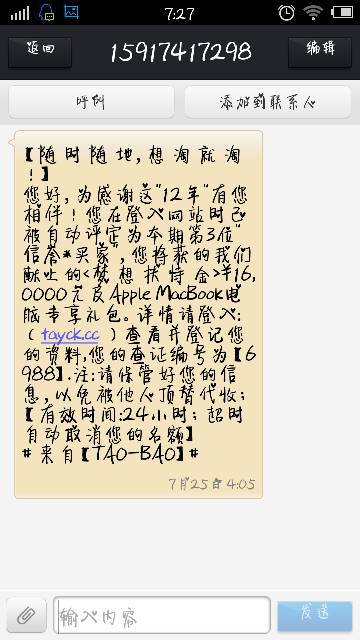 7:27
返回
15917417298
编辑
呼叫
添加到联系人
【随时随地,想淘就淘
!】
您好,为感谢这"12年"有您
相伴！您在登入网站时已
被自动评定为本期第3位"
信誉*买家",您将获的我们
献上的<梦想扶持金>¥16,
0000元及Apple MacBook电
脑专享礼包。详情请登入:
（tayck.cc）查看并登记您
的资料,您的查证编号为【6
988】.注:请保管好您的信
息,以免被他人顶替代收;
【有效时间:24小时;超时
自动取消您的名额】
#来自【TAO-BAO】#
7月25日 4:05
输入内容
发送